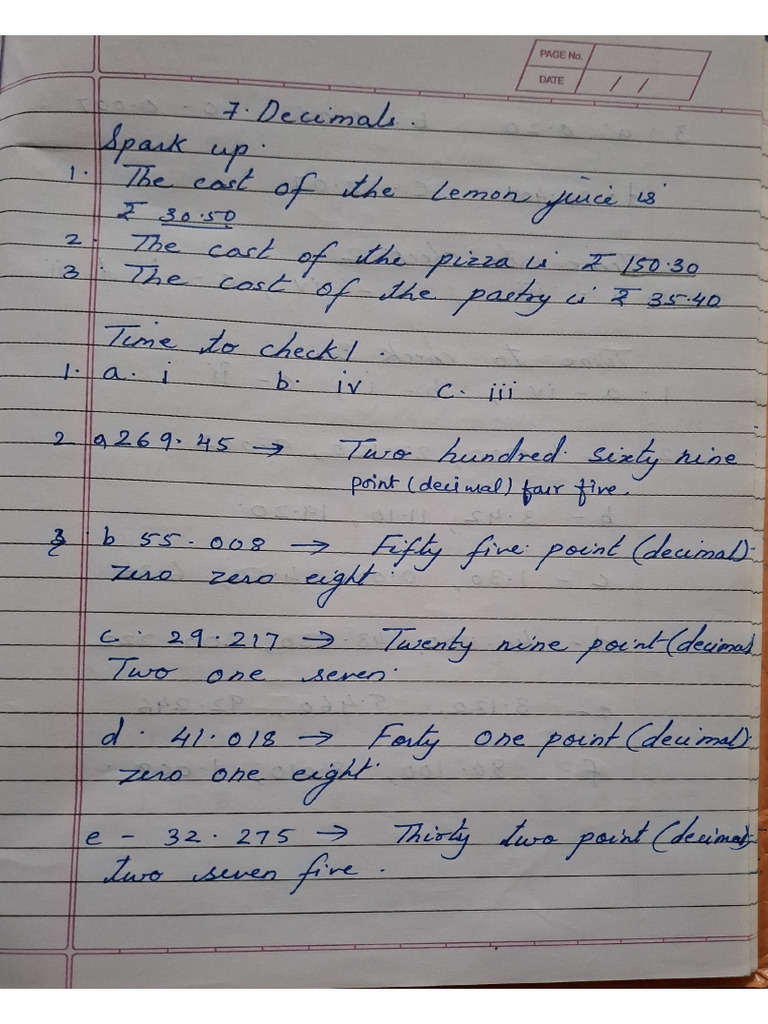 PAGE No.
DATE / /
7. Decimals.
Spark up.
1. The cost of the lemon juice is
₹ 30.50
2. The cost of the pizza is ₹ 150.30
3. The cost of the pastry is ₹ 35.40
Time to check 1.
1. a. i b. iv c. iii
2 a 269.45 → Two hundred sixty nine
point (decimal) four five.
b 55.008 → Fifty five point (decimal)
zero zero eight.
c. 29.217 → Twenty nine point (decimal
Two one seven.
d. 41.018 → Forty one point (decimal)
zero one eight.
e - 32.275 → Thirty two point (decimal)
two seven five.